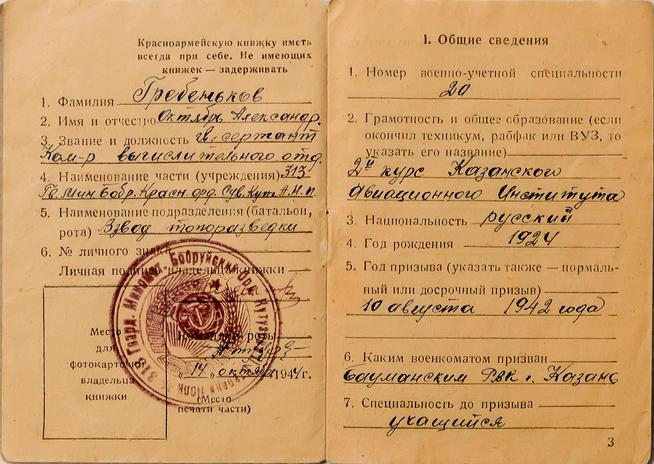 Красноармейскую книжку иметь
всегда при себе. Не имеющих
книжек — задерживать
1. Фамилия Гребеньков
2. Имя и отчество Октябрь Александр.
3. Звание и должность гв. сержант
Ком-р вычислительного отд.
4. Наименование части (учреждения) 313
Гв. Мин. Бобр. Красн. орд. Сув. Кут. А.М.П.
5. Наименование подразделения (батальон,
рота) Взвод топоразведки
6. № личного знака
Личная подпись владельца книжки
Место
для
фотокарточки
владельца
книжки
роты
"14" октября 194 г.
(Место
печати части)
1. Общие сведения
1. Номер военно-учетной специальности
20
2. Грамотность и общее образование (если
окончил техникум, рабфак или ВУЗ, то
указать его название)
2й курс Казанского
Авиационного Института
3. Национальность русский
4. Год рождения 1924
5. Год призыва (указать также — нормаль-
ный или досрочный призыв)
10 августа 1942 года
6. Каким военкоматом призван
Бауманским РВК г. Казань
7. Специальность до призыва
учащийся
3